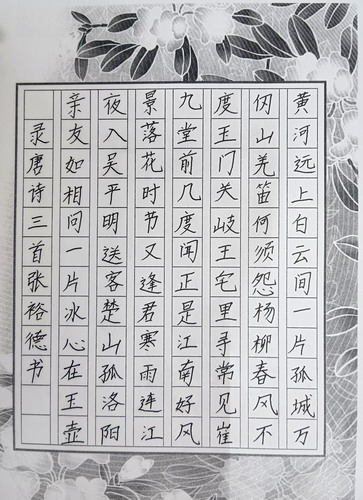 黄河远上白云间一片孤城万
仞山羌笛何须怨杨柳春风不
度王门关岐王宅里寻常见崔
九堂前几度闻正是江南好风
景落花时节又逢君寒雨连江
夜入吴平明送客楚山孤洛阳
亲友如相问一片冰心在王壶
录唐诗三首张裕德书